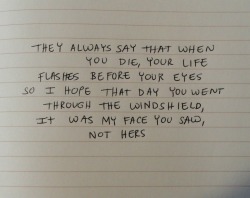 THEY ALWAYS SAY THAT WHEN
YOU DIE, YOUR LIFE
FLASHES BEFORE YOUR EYES
SO I HOPE THAT DAY YOU WENT
THROUGH THE WINDSHIELD,
IT WAS MY FACE YOU SAW,
NOT HERS